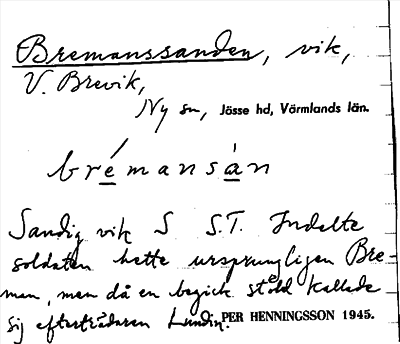 Bremanssanden, vik,
V. Brevik,
Ny sn, Jösse hd, Värmlands län.
brémansán
Sandig vik S S.T. Indelte
soldaten hette ursprungligen Bre-
man, men då en begick stöld kallade
sig efterträdaren Lundin. PER HENNINGSSON 1945.